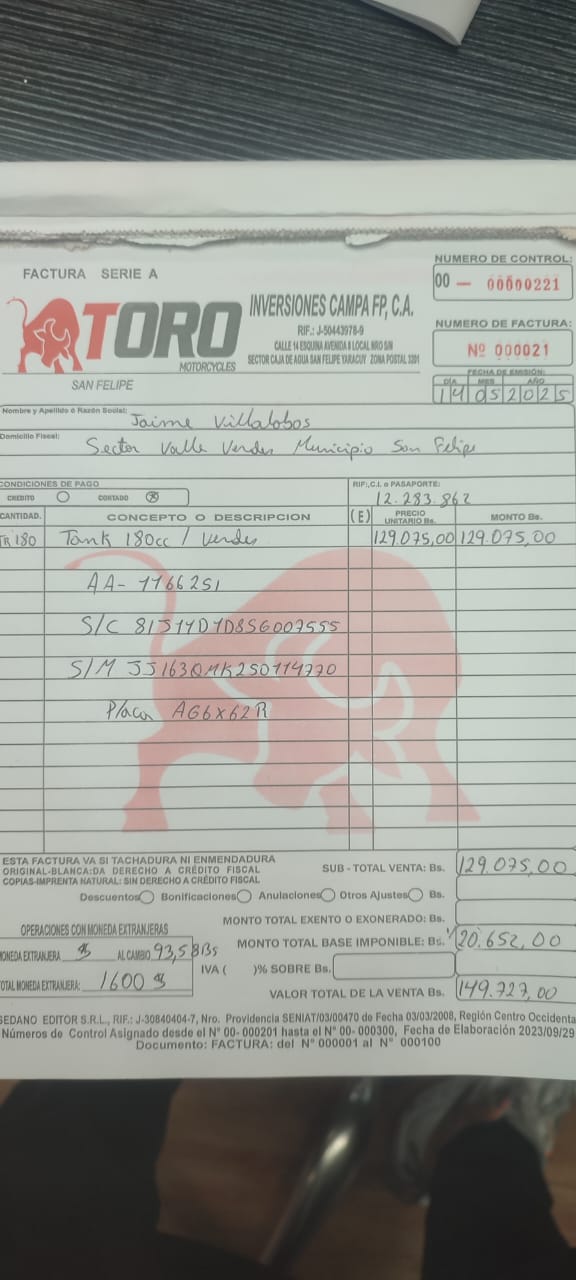 FACTURA SERIE A
NUMERO DE CONTROL:
00 — 00000221
TORO
MOTORCYCLES
SAN FELIPE
INVERSIONES CAMPA FP, C.A.
RIF.: J-50443978-9
CALLE 14 ESQUINA AVENIDA 8 LOCAL NRO S/N
SECTOR CAJA DE AGUA SAN FELIPE YARACUY ZONA POSTAL 3201
NUMERO DE FACTURA:
Nº 000021
FECHA DE EMISIÓN:
DÍA MES AÑO
14 05 2025
Nombre y Apellido ó Razón Social: Jaime Villalobos
Domicilio Fiscal: Sector Valle Verdes Municipio San Felipe
CONDICIONES DE PAGO
CREDITO CONTADO
RIF:,C.I. o PASAPORTE:
12.283.862
CANTIDAD. CONCEPTO O DESCRIPCION (E) PRECIO UNITARIO Bs. MONTO Bs.
TR 180 Tank 180cc / Verdes 129.075,00 129.075,00
AA-
S/C
S/M
Placa AG6X62R
ESTA FACTURA VA SI TACHADURA NI ENMENDADURA
ORIGINAL-BLANCA:DA DERECHO A CRÉDITO FISCAL
COPIAS-IMPRENTA NATURAL: SIN DERECHO A CRÉDITO FISCAL
SUB - TOTAL VENTA: Bs. 129.075,00
Descuentos Bonificaciones Anulaciones Otros Ajustes Bs.
MONTO TOTAL EXENTO O EXONERADO: Bs.
OPERACIONES CON MONEDA EXTRANJERAS
MONTO TOTAL BASE IMPONIBLE: Bs. 20.652,00
MONEDA EXTRANJERA $ AL CAMBIO 93,58Bs
IVA ( )% SOBRE Bs.
TOTAL MONEDA EXTRANJERA: 1600 $
VALOR TOTAL DE LA VENTA Bs. 149.727,00
SEDANO EDITOR S.R.L., RIF.: J-30840404-7, Nro. Providencia SENIAT/03/00470 de Fecha 03/03/2008, Región Centro Occidenta
Números de Control Asignado desde el N° 00- 000201 hasta el N° 00- 000300, Fecha de Elaboración 2023/09/29
Documento: FACTURA: del N° 000001 al N° 000100